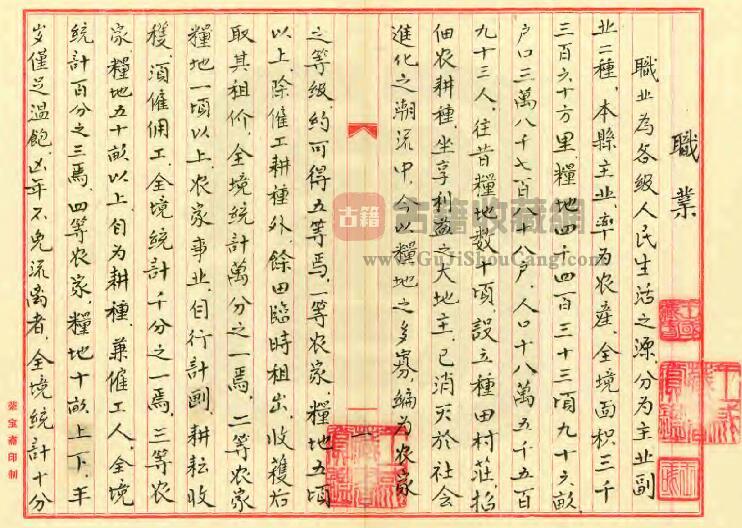 職業
職业為各級人民生活之源.分為主业副
业二種.本縣主业.率为农產.全境面积三千
三百六十方里.糧地四千四百三十三頃九十六畝.
户口三萬八千七百八十八户.人口十八萬五千五百
九十三人.往昔糧地数十頃.設立種田村莊.招
佃农耕種.坐享利益之大地主.已消灭於社会
進化之潮流中.今以糧地之多寡.編为农家
之等级約可得五等焉.一等农家.糧地五頃
以上.除僱工耕種外.餘田臨時租出.收穫后
取其租价.全境統計萬分之一焉.二等农家
糧地一頃以上.农家事业.自行計劃.耕耘收
穫.須僱佣工.全境統計千分之一焉.三等农
家.糧地五十畝以上.自为耕種.兼僱工人.全境
統計百分之三焉.四等农家.糧地十畝上下.丰
岁僅足温飽.凶年不免流离者.全境統計十分
榮宝斋印制
一
古籍
古籍收藏網
www.GuJiShouCang.com